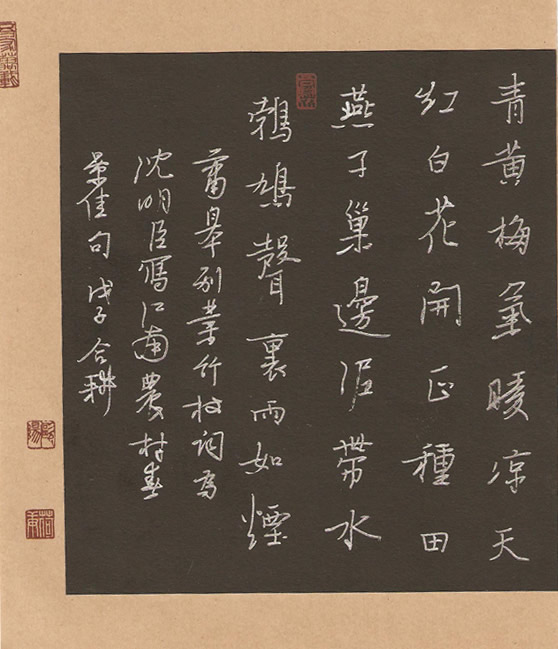 青黄梅氣暖凉天
红白花開正種田
燕子巢邊泥帶水
鵓鳩聲裏雨如煙
蕭皋别業竹枝詞為
沈明臣寫江南農村春
景佳句 戊子 合耕